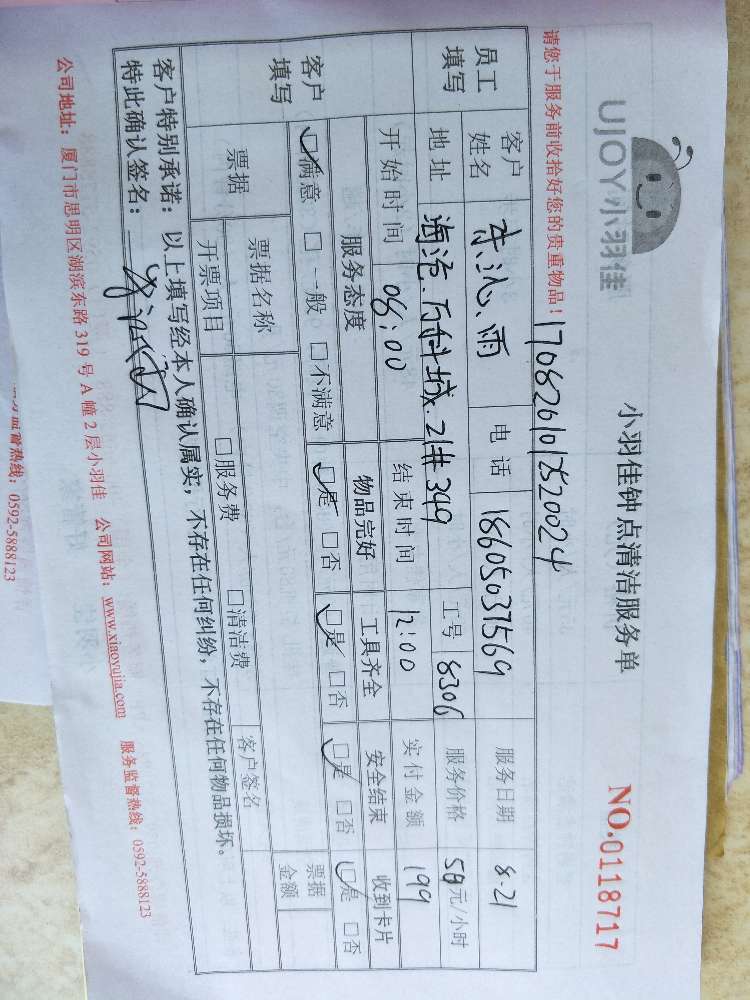 UJOY小羽佳
小羽佳钟点清洁服务单
NO.0118717
请您于服务前收拾好您的贵重物品!
1708261012520024
员工填写
客户姓名 沁雨 电话 18605037569 服务日期 8.21
地址 海沧.万科城.21#349 工号 8306 服务价格 50元/小时
开始时间 08:00 结束时间 12:00 实付金额 199
客户填写
服务态度 物品完好 工具齐全 安全结束 收到卡片
☑满意 □一般 □不满意 ☑是 □否 ☑是 □否 ☑是 □否 ☑是 □否
票据 票据名称 客户签名 票据金额
开票项目 □服务费 □清洁费
客户特别承诺:以上填写经本人确认属实,不存在任何纠纷,不存在任何物品损坏。
特此确认签名:
公司地址:厦门市思明区湖滨东路 319 号 A 幢 2 层小羽佳 公司网站:www.xiaoyujia.com 服务监督热线:0592-5888123
务监督热线:0592-5888123